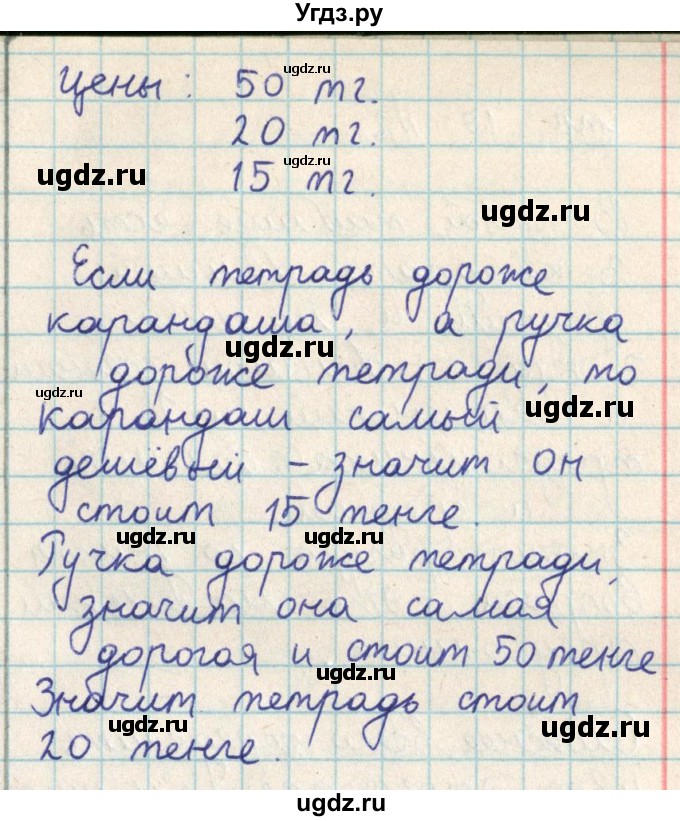 Угдз.ру
ugdz.ru
цены: 50 тг.
ugdz.ru
20 тг.
ugdz.ru
ugdz.ru
15 тг.
ugdz.ru
Если тетрадь дороже
карандаша, а ручка
ugdz.ru
дороже тетради, то
ugdz.ru
ugdz.ru
карандаш самый
дешёвый – значит он
стоит 15 тенге.
ugdz.ru ugdz.ru
Ручка дороже тетради,
значит она самая
дорогая и стоит 50 тенге
ugdz.ru
Значит тетрадь стоит
ugdz.ru ugdz.ru
20 тенге.
ugdz.ru